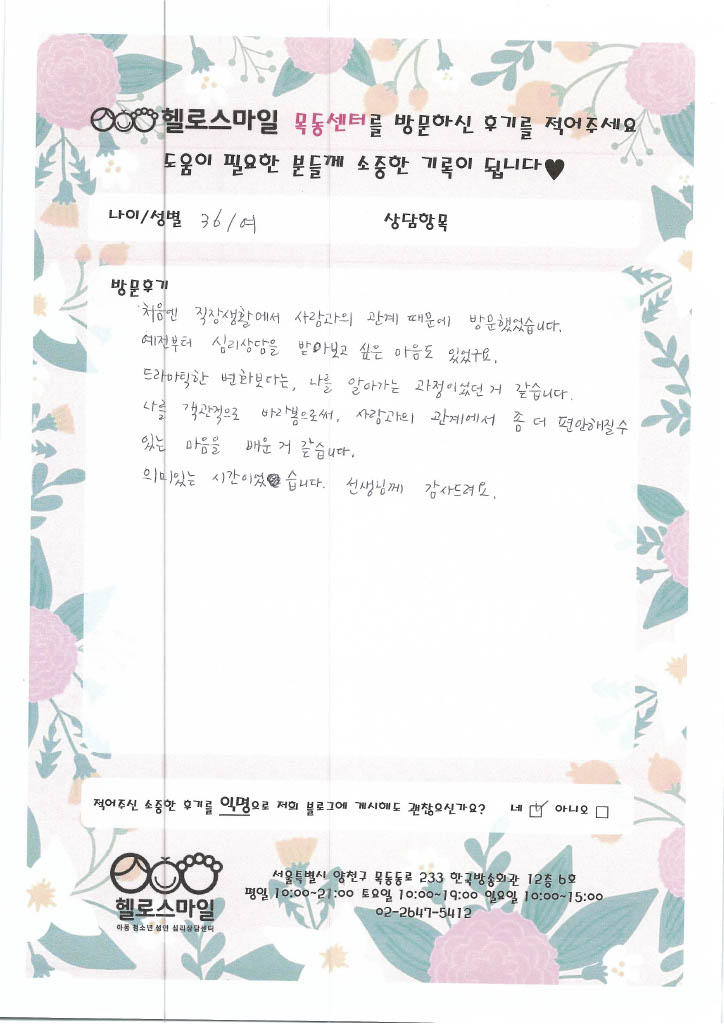 헬로스마일 목동센터를 방문하신 후기를 적어주세요
도움이 필요한 분들께 소중한 기록이 됩니다♥
나이/성별 36/여 상담항목
방문후기
처음엔 직장생활에서 사람과의 관계 때문에 방문했었습니다.
예전부터 심리상담을 받아보고 싶은 마음도 있었구요.
드라마틱한 변화보다는, 나를 알아가는 과정이었던 거 같습니다.
나를 객관적으로 바라봄으로써, 사람과의 관계에서 좀 더 편안해질수
있는 마음을 배운 거 같습니다.
의미있는 시간이었습니다. 선생님께 감사드려요.
적어주신 소중한 후기를 익명으로 저희 블로그에 게시해도 괜찮으신가요? 네 ☑ 아니오 □
헬로스마일
아동 청소년 성인 심리상담센터
서울특별시 양천구 목동동로 233 한국방송회관 12층 6호
평일 10:00~21:00 토요일 10:00~19:00 일요일 10:00~15:00
02-2647-5412